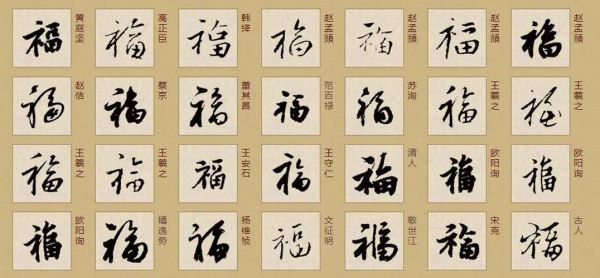 福 黄庭坚
福 高正臣
福 韩绛
福 赵孟頫
福 赵孟頫
福 赵孟頫
福 赵孟頫
福 赵佶
福 蔡京
福 董其昌
福 范百禄
福 苏洵
福 王羲之
福 王羲之
福 王羲之
福 王羲之
福 王安石
福 王守仁
福 清人
福 欧阳询
福 欧阳询
福 欧阳询
福 橘逸势
福 杨维桢
福 文征明
福 敬世江
福 宋克
福 古人